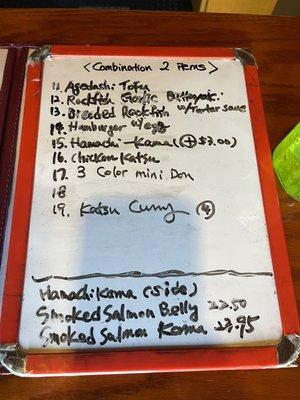 <Combination 2 items>
11. Agedashi Tofu
12. Rockfish Garlic
13. Breaded Rockfish w/Tartar sauce
14. Hamburger w/egg
15. Hamachi-Kama (+$3.00)
16. Chicken Katsu
17. 3 Color mini Don
18
19. Katsu Curry (4)
Hamachi Kama (side)
Smoked Salmon Belly 22.50
Smoked Salmon Kama 23.95